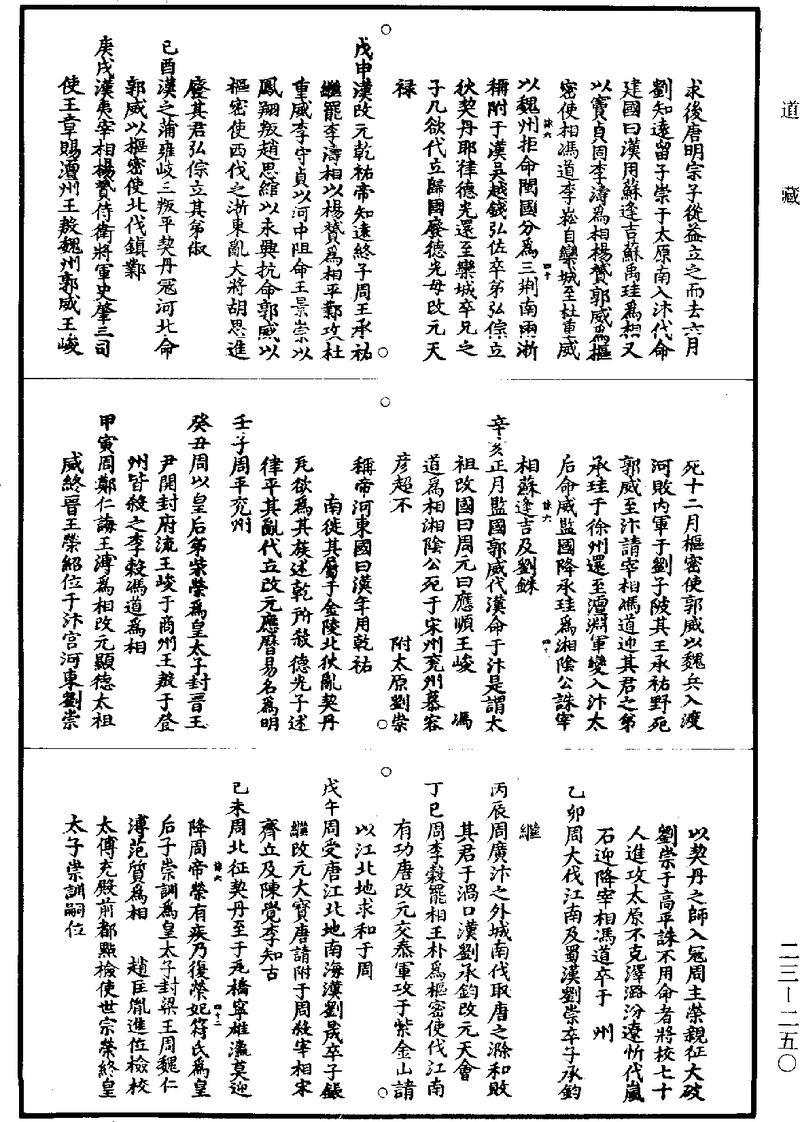 道藏
求後唐明宗子從益立之而去六月
劉知遠留子崇于太原南入汴代命
建國曰漢用蘇逢吉蘇禹珪為相又
以竇貞固李濤為相楊贇郭威為樞
密使相馮道李崧自欒城至杜重威
以魏州拒命閩國分為三荆南兩浙
稱附于漢吳越錢弘佐卒弟弘倧立
狄契丹耶律德光還至欒城卒兄之
子兀欲代立歸國廢德光母改元天
祿
戊申漢改元乾祐帝知遠終子周王承祐
繼罷李濤相以楊贇為相平鄴攻杜
重威李守貞以河中阻命王景崇以
鳳翔叛趙思綰以永興抗命郭威以
樞密使西伐之浙東亂大將胡思進
廢其君弘倧立其弟俶
己酉漢之蒲雍岐三叛平契丹寇河北命
郭威以樞密使北伐鎮鄴
庚戌漢夷宰相楊贇侍衛將軍史肇三司
使王章賜澶州王殷魏州郭威王峻
死十二月樞密使郭威以魏兵入渡
河敗內軍于劉子陂其王承祐野死
郭威至汴請宰相馮道迎其君之弟
承珪于徐州還至澶淵軍變入汴太
后命威監國降承珪為湘陰公誅宰
相蘇逢吉及劉銖
辛亥正月監國郭威代漢命于汴是謂太
祖改國曰周元曰應順王峻 馮
道為相湘陰公死于宋州兖州慕容
彥超不 附太原劉崇
稱帝河東國曰漢年用乾祐
南徙其屬于金陵北狄亂契丹
兀欲為其族述軋所殺德光子述
律平其亂代立改元應曆易名為明
壬子周平兖州
癸丑周以皇后弟柴榮為皇太子封晉王
尹開封府流王峻于商州王殷于登
州皆殺之李穀馮道為相
甲寅周鄭仁誨王溥為相改元顯德太祖
威終晉王榮紹位于汴宮河東劉崇
以契丹之師入寇周主榮親征大破
劉崇于高平誅不用命者將校七十
人進攻太原不克澤潞汾遼忻代嵐
石迎降宰相馮道卒于 州
乙卯周大伐江南及蜀漢劉崇卒子承鈞
繼
丙辰周廣汴之外城南伐取唐之滁和敗
其君于渦口漢劉承鈞改元天會
丁巳周李穀罷相王朴為樞密使伐江南
有功唐改元交泰軍攻于紫金山請
以江北地求和于周
戊午周受唐江北地南海漢劉晟卒子鋹
繼改元大寶唐請附于周殺宰相宋
齊丘及陳覺李知古
己未周北征契丹至于瓦橋寧雄瀛莫迎
降周帝榮有疾乃復榮妃符氏為皇
后子崇訓為皇太子封梁王周魏仁
溥范質為相 趙匡胤進位檢校
太傅充殿前都點檢使世宗榮終皇
太子崇訓嗣位
二三—二五〇